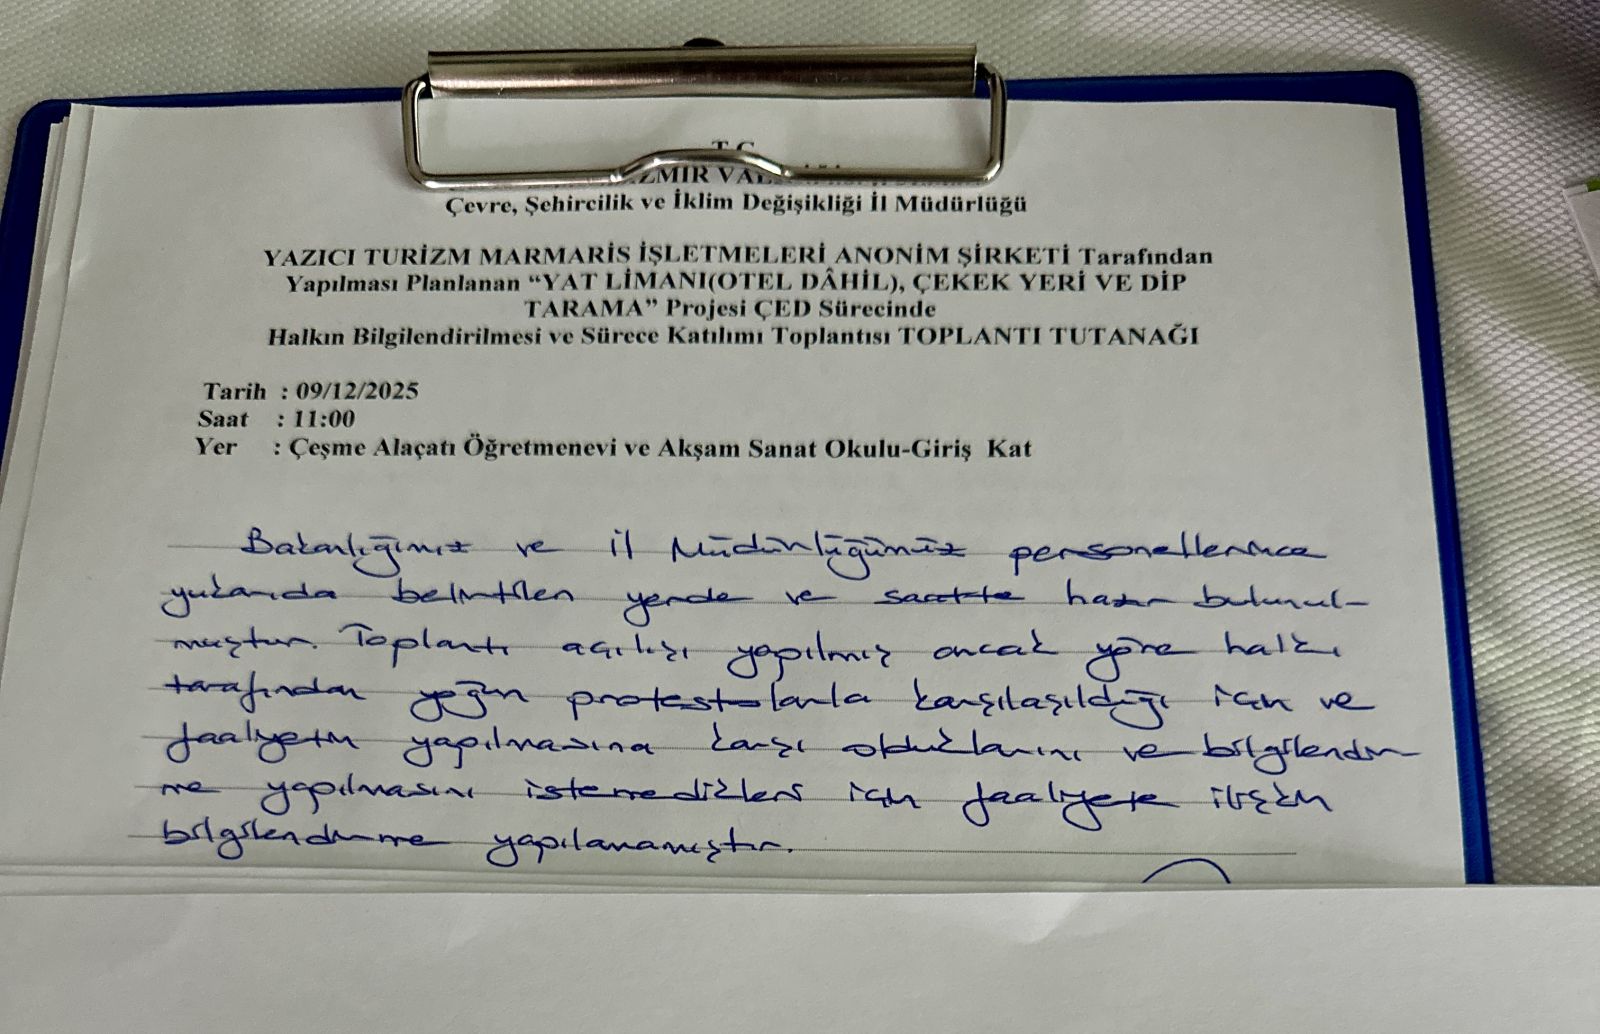 T.C.
İZMİR VAL
Çevre, Şehircilik ve İklim Değişikliği İl Müdürlüğü
YAZICI TURİZM MARMARİS İŞLETMELERİ ANONİM ŞİRKETİ Tarafından
Yapılması Planlanan “YAT LİMANI(OTEL DÂHİL), ÇEKEK YERİ VE DİP
TARAMA” Projesi ÇED Sürecinde
Halkın Bilgilendirilmesi ve Sürece Katılımı Toplantısı TOPLANTI TUTANAĞI
Tarih : 09/12/2025
Saat : 11:00
Yer : Çeşme Alaçatı Öğretmenevi ve Akşam Sanat Okulu-Giriş Kat
Bakanlığımız ve İl Müdürlüğümüz personellerince
yukarıda belirtilen yerde ve saatte hazır bulunul-
muştur. Toplantı açılışı yapılmış ancak yöre halkı
tarafından yoğun protestolarla karşılaşıldığı için ve
faaliyetin yapılmasına karşı olduklarını ve bilgilendir
me yapılmasını istemedikleri için faaliyete ilişkin
bilgilendirme yapılanamıştır.